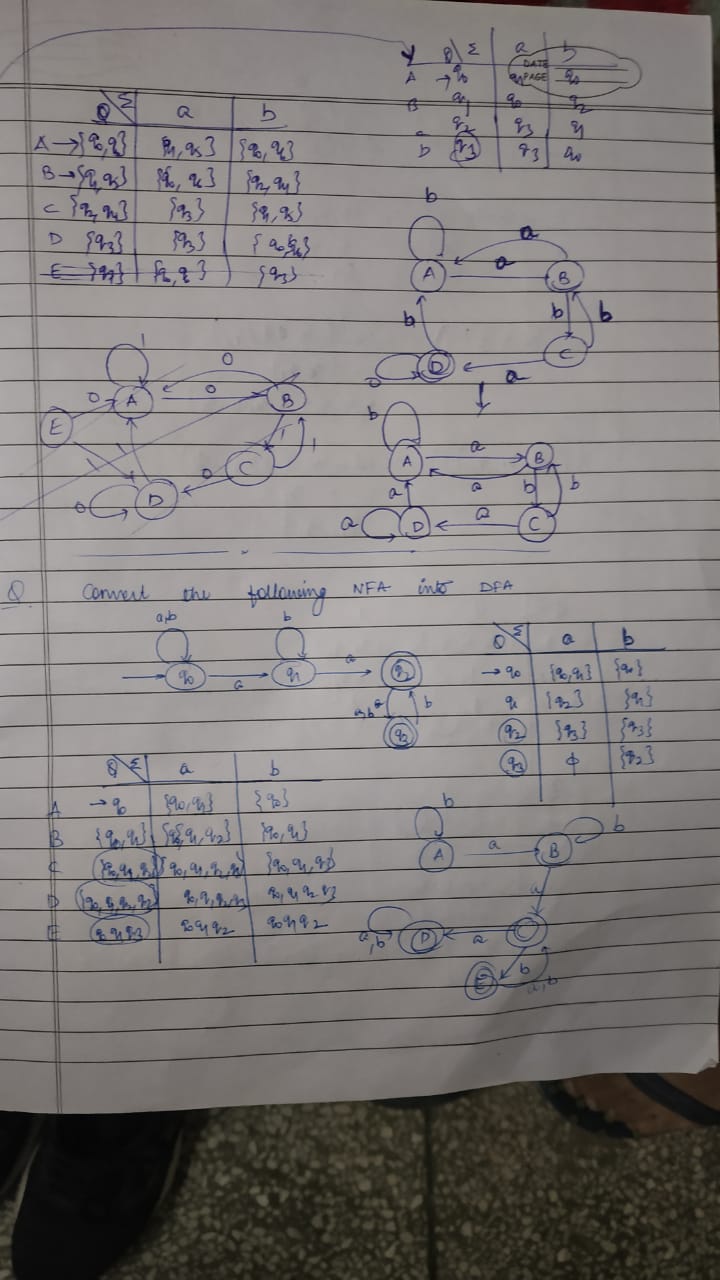 Q \ Σ a b
DATE
PAGE
A → q0 q1 q0
B q1 q0 q2
C q2 q3 q1
D q3 q3 q0
Q \ Σ a b
A → {q0, } { , } {q0, }
B → { , } {q0, } {q2, q1}
C {q2, } {q3} {q1, }
D {q3} {q3} {q0, }
E {q3}
b
a
A a B
b b b
D a C
1
0
A 0 B
0
E 1 1
0 C
1 1
0 D
b
A a B
a
a b b
a D a C
Q. Convert the following NFA into DFA
a,b b
q0 a q1 a q2
a,b b
q3
Q \ Σ a b
→ q0 {q0,q1} {q0}
q1 {q2} {q1}
q2 {q3} {q3}
q3 ϕ {q2}
Q \ Σ a b
A → q0 {q0,q1} {q0}
B {q0,q1} {q0,q1,q2} {q0,q1}
C {q0,q1,q2} {q0,q1,q2,q3} {q0,q1,q3}
D {q0,q1,q2,q3} q0,q1,q2,q3 q0,q1,q2,q3
E q0q1q3 q0q1q2 q0q1q2
b
A a B b
a
a,b D a
E b
a,b